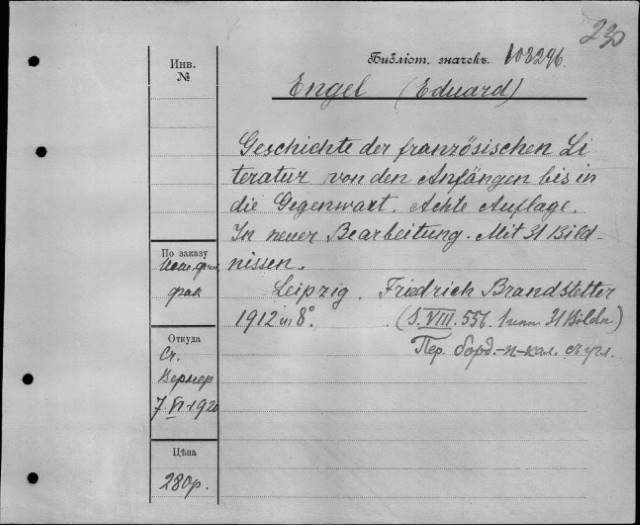 230
Библіот. значекъ. 108296.
Инв.
№
Engel (Eduard)
Geschichte der französischen Li
teratur von den Anfängen bis in
die Gegenwart. Achte Auflage.
In neuer Bearbeitung. Mit 31 Bild-
nissen.
Leipzig. Friedrich Brandstetter
1912 in 8°. (S. VIII. 556. 1 unn. 31 Bildn)
Пер. борд.-п-кал. съ угл.
По заказу
фак
Откуда
Ст.
Вернер
7.VI.1920
Цѣна
280р.